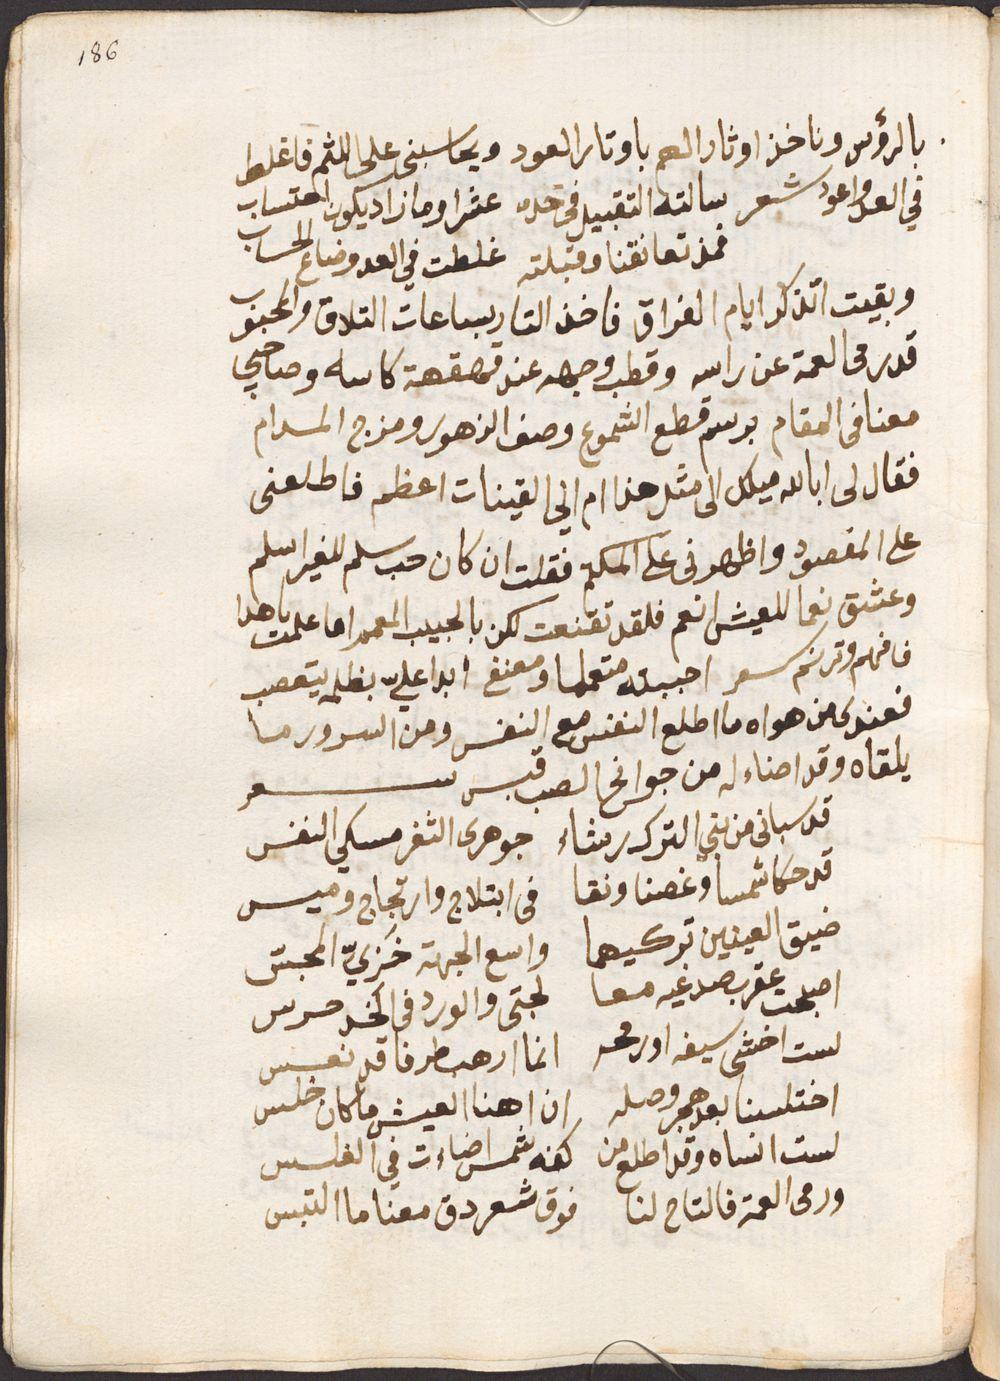 186
بالرؤس وناخذ اوثار الهم باوتار العود ويحاسبنى على اللثم فاغلط
في العد واعود شعر سالته التقبيل فى خده عشرا وما زاد يكون احتساب
فمذ تعانقنا وقبلته غلطت في العد وضاع الحساب
وبقيت اتذكر ايام الفراق فاخذ الثار بساعات التلاق والمحبوب
قد رمى العمة عن راسه وقطب وجهه عند قهقهة كاسه وصاحبي
معنا فى المقام برسم قطع الشموع وصف الزهور ومزج المدام
فقال لى ابالله ميلك الى مثل هذا ام الي القينات اعظم فاطلعنى
على المقصود واظهرنى على المكتم فقلت ان كان حب سلم للغير اسلم
وعشق نعما للعيش انعم فلقد تقنعت لكن بالحبيب المعمم اما علمت يا هذا
فافهم وترنم سعر احببته متعمما ومعنفى ابدا عليّ بظلمه يتعصب
فعندك من هواه ما اطلع النفس مع النفس ومن السرور ما
يلقاه وقد اضاء له من جوانح الصب قبس سعر
قد سبانى من بني الترك رشاء جوهرى الثغر مسكي النفس
قد حكا شمسا وغصنا ونقا فى ابتلاج وارتجاج وميس
ضيق العينين تركيهما واسع الجبهة خزيّ المجس
اصبحت عقرب صدغيه معا لجنى والورد فى الخد حرس
لست اخشى سيفه او رمحه انما ارهب طرفا قد نعس
اختلسنا بعد هجر وصله ان اهنا العيش ما كان خلس
لست انساه وقد اطلع من كفه شمس اضاءت في الغلس
ورمى العمة فالتاح لنا فوق شعر دق معنا ما التبس